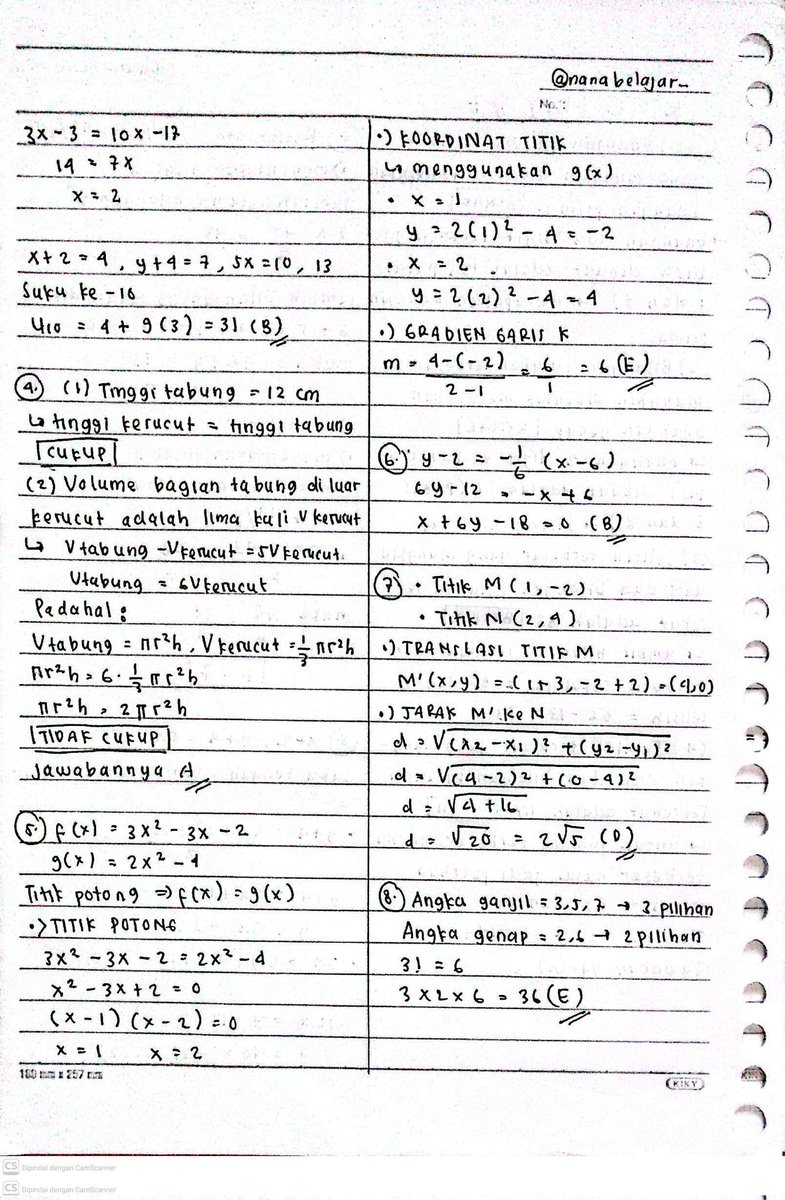 @nanabelajar_
No.:
3x - 3 = 10x - 17
14 = 7x
x = 2
x + 2 = 4, y + 4 = 7, 5x = 10, 13
Suku ke-10
U10 = 4 + 9(3) = 31 (B)
4. (1) Tinggi tabung = 12 cm
↳ tinggi kerucut = tinggi tabung
CUKUP
(2) Volume bagian tabung di luar
kerucut adalah lima kali V kerucut
↳ V tabung - V kerucut = 5V kerucut
V tabung = 6V kerucut
Padahal:
V tabung = πr²h, V kerucut = 1/3 πr²h
πr²h = 6 · 1/3 πr²h
πr²h = 2πr²h
TIDAK CUKUP
Jawabannya A
5. f(x) = 3x² - 3x - 2
g(x) = 2x² - 4
Titik potong ⇒ f(x) = g(x)
•> TITIK POTONG
3x² - 3x - 2 = 2x² - 4
x² - 3x + 2 = 0
(x - 1) (x - 2) = 0
x = 1 x = 2
•) KOORDINAT TITIK
↳ menggunakan g(x)
• x = 1
y = 2(1)² - 4 = -2
• x = 2
y = 2(2)² - 4 = 4
•) GRADIEN GARIS K
m = 4-(-2)/2-1 = 6/1 = 6 (E)
6. y - 2 = -1/6 (x - 6)
6y - 12 = -x + 6
x + 6y - 18 = 0 (B)
7. • Titik M (1, -2)
• Titik N (2, 4)
•) TRANSLASI TITIK M
M'(x,y) = (1+3, -2+2) = (4,0)
•) JARAK M' ke N
d = √(x2 - x1)² + (y2 - y1)²
d = √(4-2)² + (0-4)²
d = √4 + 16
d = √20 = 2√5 (D)
8. Angka ganjil = 3, 5, 7 → 3 pilihan
Angka genap = 2, 6 → 2 pilihan
3! = 6
3 x 2 x 6 = 36 (E)
KIKY
CS Dipindai dengan CamScanner
CS Dipindai dengan CamScanner